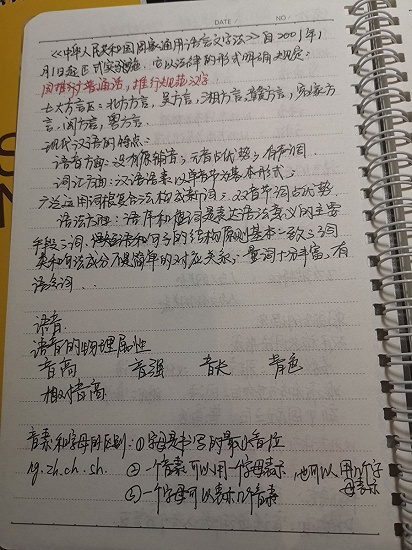 DATE NO
《中华人民共和国国家通用语言文字法》自2001年1
月1日起正式实施. 它以法律的形式明确规定:
国推行普通话, 推行规范汉字
七大方言区: 北方方言, 吴方言, 湘方言, 赣方言, 客家方
言, 闽方言, 粤方言.
现代汉语的特点:
语音方面: 没有复辅音; 元音占优势; 有声调.
词汇方面: 汉语语素以单音节为基本形式;
广泛运用词根复合法构成新词; 双音节词占优势.
语法方面: 语序和虚词是表达语法意义的主要
手段; 词、 和句子的结构原则基本一致; 词
类和句法成分不是简单的对应关系; 量词十分丰富, 有
语气词..
语音
语音的物理属性
音高 音强 音长 音色
相对音高
音素和字母的区别: ①字母是书写的最小单位
ng. zh. ch. sh. ②一个音素可以用一个字母表示 也可以用几个字
母表示
③一个字母可以表示几个音素